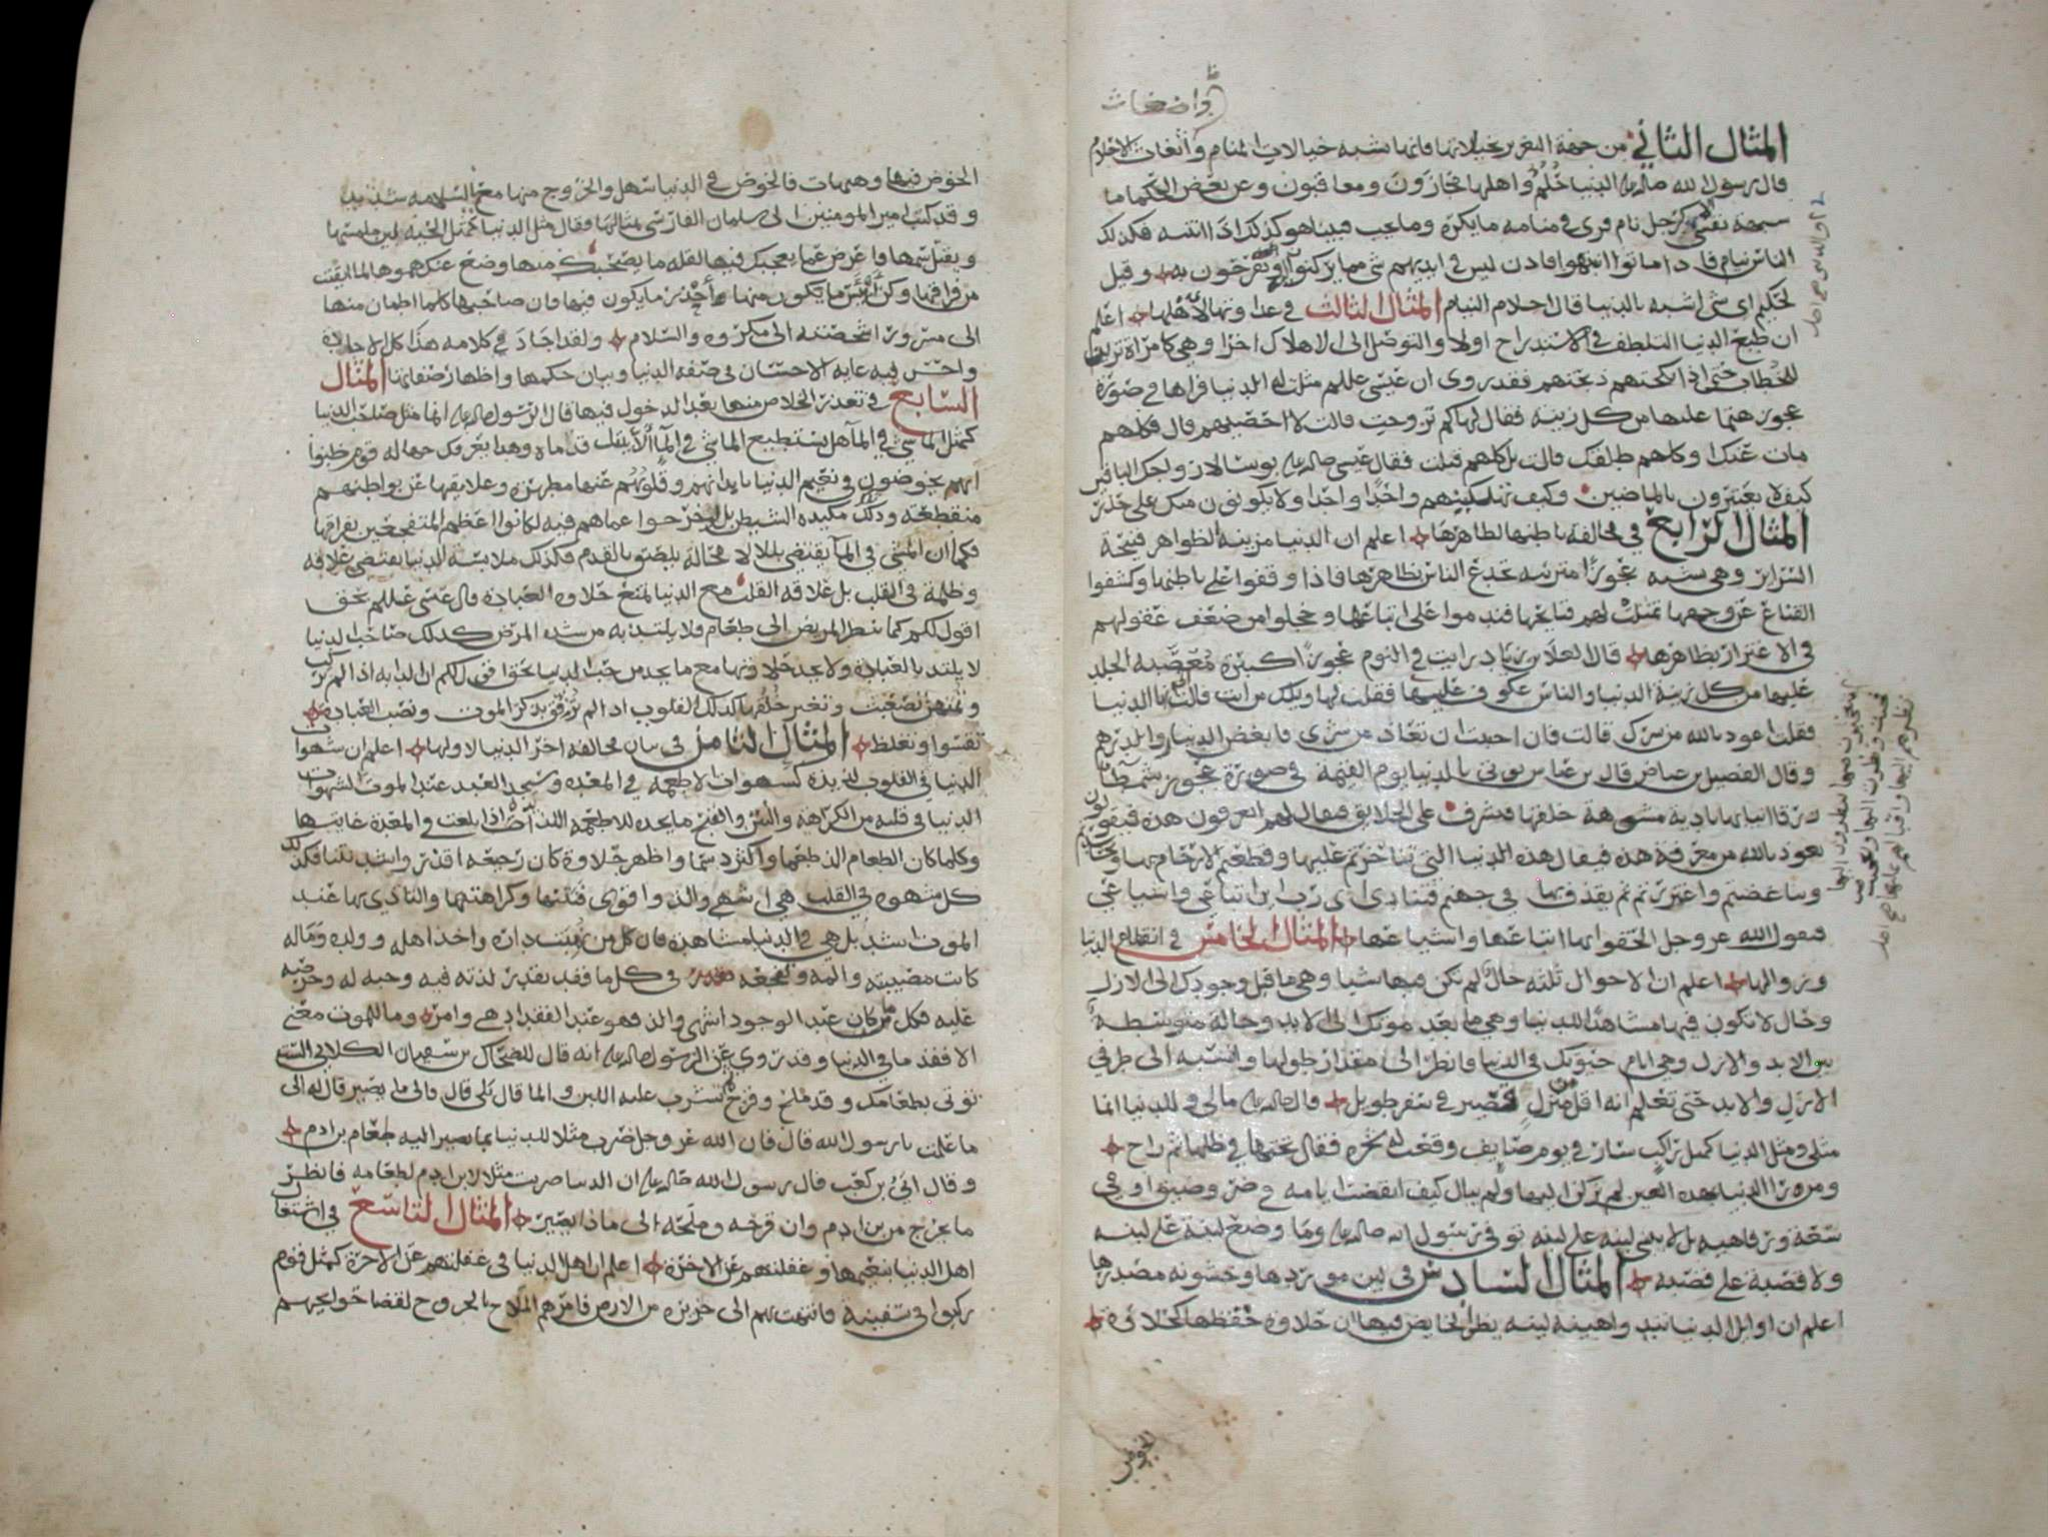 واضغاث
المثال الثاني من جهة التغرير بخيالاتها فانها تشبه خيالات المنام واضغاث الاحلام
قال رسول الله صلى الله عليه الدنيا حُلُمٌ واهلها مجازون ومعاقبون وعن بعض الحكما ما
شبهة نفسي كرجل نام فرى في منامه ما يكره وما يحب فبينا هو كذلك اذ انتبه فكذلك
الناس نيام فاذا ماتوا انتبهوا فاذن ليس في ايديهم شي مما يركنوا ويفرحون به وقيل
لحكيم اي شي اشبه بالدنيا قال احلام النيام المثال الثالث في عداوتها لاهلها اعلم
ان طبع الدنيا التلطف في الاستدراج اولا والتوصل الى الاهلاك اخرا وهي كامراة تزين
للخطاب حتى اذا نكحتهم ذبحتهم فقد روي ان عيسى عللم مثلت له الدنيا فراها في صورة
عجوز هتما عليها من كل زينه فقال لها كم تزوجت قالت لا احصيهم قال فكلهم
مات عنك او كلهم طلقك قالت بل كلهم قتلت فقال عيسى صلى الله عليه بوسا لازواجك الباقين
كيف لا يعتبرون بالماضين وكيف تهلكينهم واحدا واحدا ولا يكونون منك على حذر
المثال الرابع في مخالفة باطنها لظاهرها اعلم ان الدنيا مزينة الظواهر قبيحة
السراير وهي شبه عجوز متزينه تخدع الناس بظاهرها فاذا وقفوا على باطنها وكشفوا
القناع عن وجهها تمثلت لهم قبايحها فندموا على اتباعها وخجلوا من ضعف عقولهم
في الاغترار بظاهرها قال العلا بن زياد رايت في النوم عجوزا كبيرة مُعَصَّبة الجلد
عليها من كل زينة الدنيا والناس عكوف عليها فقلت لها ويلك من انت قالت انا الدنيا
فقلت اعوذ بالله من شرك قالت فان احببت ان تعاذ من شري فابغض الدينار والدرهم
وقال الفضيل بن عياض قال بن عباس يوتى بالدنيا يوم القيمة في صورة عجوز شمطا
زرقا انيابها بادية مشوهة خلقها فتشرف على الخلايق فيقال لهم اتعرفون هذه فيقولون
نعوذ بالله من معرفة هذه فيقال هذه الدنيا التي تناحرتم عليها وقطعتم الارحام بها وتحاسدتم
وتباغضتم واغتررتم ثم يقذف بها في جهنم فتنادي اي رب اين اتباعي واشياعي
فيقول الله عز وجل الحقوا بها اتباعها واشياعها المثال الخامس في انقطاع الدنيا
وزوالها اعلم ان الاحوال ثلثه حال لم تكن فيها شيا وهي ما قبل وجودك الى الازل
وحال لا تكون فيها مشاهدا للدنيا وهي ما بعد موتك الى الابد وحالة متوسطة
بين الابد والازل وهي ايام حيوتك في الدنيا فانظر الى مقدار طولها وانسبه الى طرفي
الازل والابد حتى تعلم انه اقل من منزل قصير في سفر طويل قال صلى الله عليه مالي وللدنيا انما
مثلي ومثل الدنيا كمثل راكب سار في يوم صايف وقعت له شجره فقال تحتها في ظلها ثم راح
ومن را الدنيا بهذه العين لم يركن اليها ولم يبال كيف انقضت ايامه في ضر وضيق او في
سعة ورفاهيه بل لا يبني لبنه على لبنه توفي رسول الله صلى الله عليه وما وضع لبنة على لبنه
ولا قصبة على قصبه المثال السادس في لين موردها وخشونه مصدرها
اعلم ان اوايل الدنيا تبدو هينه لينه يظن الخايض فيها ان حلاوة خفظها كحلاوة
الخوض
الخوض فيها وهيهات فالخوض في الدنيا سهل والخروج منها مع السلامه شديد
وقد كتب امير المومنين الى سلمان الفارسي بمثالها فقال مثل الدنيا كمثل الحيه لين ملمسها
ويقتل سمها فاعرض عما يعجبك فيها لقله ما يصحبك منها وضع عنك همومها لما ايقنت
من فراقها وكن اسر ما يكون منها احذر ما يكون فيها فان صاحبها كلما اطمان منها
الى سرور اشخصته الى مكروه والسلام ولقد اجاد في كلامه هذا كل الاجاده
واحسن فيه غايه الاحسان في صفه الدنيا وبيان حكمها واظهار صفاتها المثال
السابع في تعذر الخلاص منها بعد الدخول فيها قال الرسول صلى الله عليه انما مثل صاحب الدنيا
كمثل الماشي في الما هل يستطيع الماشي في الما الا يبتل قدماه وهذا يعرفك جهاله قوم ظنوا
انهم يخوضون في نعيم الدنيا بابدانهم وقلوبهم عنها مطهره وعلايقها عن بواطنهم
منقطعه وذلك مكيده الشيطن بل لو خرجوا عما هم فيه لكانوا اعظم المتفجعين بفراقها
فكما ان المشي في الما يقتضي بللا لا محاله يلصق بالقدم فكذلك ملابسه الدنيا يقتضي علاقه
وظلمة في القلب بل علاقه القلب مع الدنيا تمنع حلاوه العباده قال عيسى عللم بحق
اقول لكم كما ينظر المريض الى طعام فلا يلتذ به من شده المرض كذلك صاحب الدنيا
لا يلتذ بالعباده ولا يجد حلاوتها مع ما يجد من حب الدنيا بحق اقول لكم ان الدابه اذا لم تركب
وتمتهن تصعبت وتغير خُلُقُها كذلك القلوب اذا لم تُرقّق بذكر الموت ونصب العباده
تقسوا وتغلظ المثال الثامن في بيان مخالفه اخر الدنيا لاولها اعلم ان شهوات
الدنيا في القلوب لذيذه كشهوات الاطعمه في المعده وسيجد العبد عند الموت لشهوات
الدنيا في قلبه من الكراهة والنتن والقبح ما يجده للاطعمه اللذيذه اذا بلغت في المعدة غايتها
وكلما كان الطعام الذ طعما واكثر دسما واظهر حلاوة كان رجيعه اقذر واشد نتنا فكذلك
كل شهوه في القلب هي اشهى والذ واقوى فنتنها وكراهتها والتاذي بها عند
الموت اشد بل هي في الدنيا مشاهده فان كل من نهبت داره واخذ اهله وولده وماله
كانت مصيبته والمه وتفجعه في كل ما فقد بقدر لذته فيه وحبه له وحرصه
عليه فكل ما كان عند الوجود اشهى والذ فهو عند الفقد ادهى وامر وما للموت معنى
الا فقد ما في الدنيا وقد روي عن الرسول صلى الله عليه انه قال للضحاك بن سفيان الكلابي الست
توتى بطعامك وقد ملح وقزح ثم تشرب عليه اللبن والما قال بلى قال والى ما يصير قال الى
ما علمت يا رسول الله قال فان الله عز وجل ضرب مثلا للدنيا بما يصير اليه طعام بن ادم
وقال ابيُّ بن كعب قال رسول الله صلى الله عليه ان الدنيا ضربت مثلا لابن ادم لطعامه فانظر
ما يخرج من بن ادم وان قزحه وملحه الى ماذا يصير المثال التاسع في اشتغال
اهل الدنيا بنعيمها وغفلتهم عن الاخرة اعلم ان اهل الدنيا في غفلتهم عن الاخرة كمثل قوم
ركبوا في سفينة فانتهت بهم الى جزيره من الارض فامرهم الملاح بالخروج لقضا حوايجهم